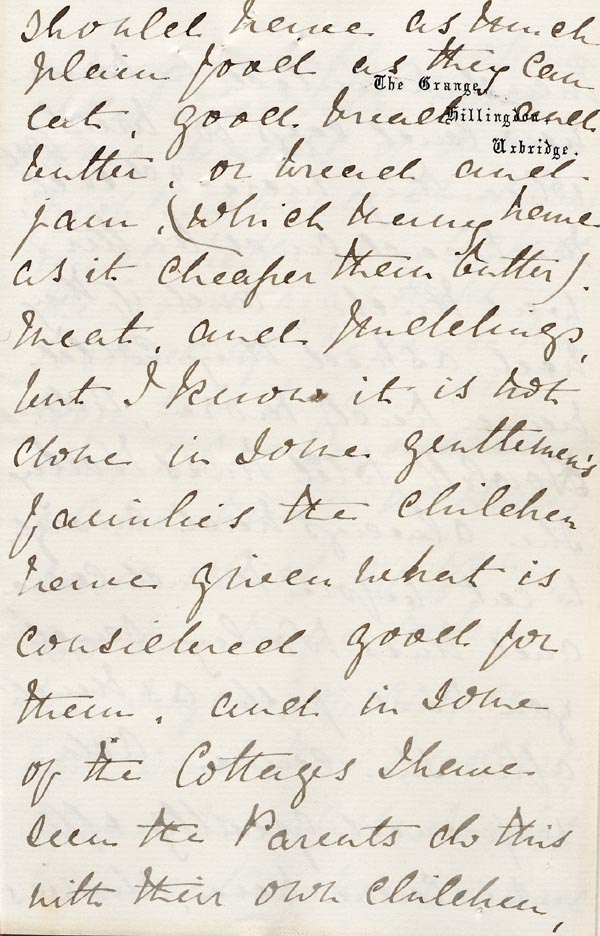 should have as much
plain food as they can
The Grange,
eat, good bread and
Hillingdon
Uxbridge.
butter, or bread and
jam, (which many have
as it cheaper then butter).
meat, and puddings,
but I know it is not
done in some gentlemen's
families the children
have given what is
considered good for
them, and in some
of the Cottages I have
seen the Parents do this
with their own children,